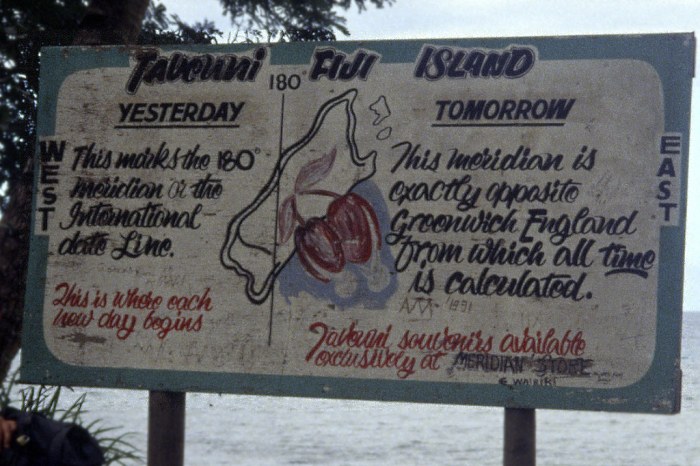 Tavouni FIJI ISLAND
180°
YESTERDAY
TOMORROW
WEST
This marks the 180°
meridian or the
International
date Line.
This is where each
new day begins
This meridian is
exactly opposite
Greenwich England
from which all time
is calculated.
1991
EAST
Tavouni souvenirs available
exclusively at MERIDIAN STORE